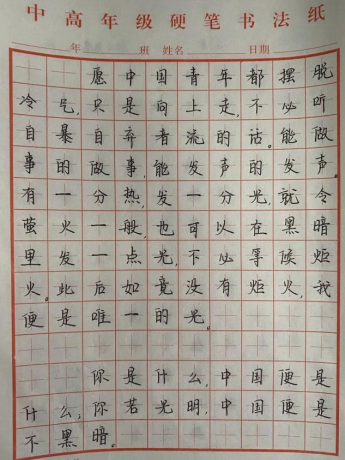 中高年级硬笔书法纸
年 班 姓名 日期
愿中国青年都摆脱
冷气,只是向上走,不必听
自暴自弃者流的话。能做
事的做事,能发声的发声。
有一分热,发一分光,就令
萤火一般,也可以在黑暗
里发一点光,不必等候炬
火。此后如竟没有炬火,我
便是唯一的光。
你是什么,中国便是
什么;你若光明,中国便是
不黑暗。